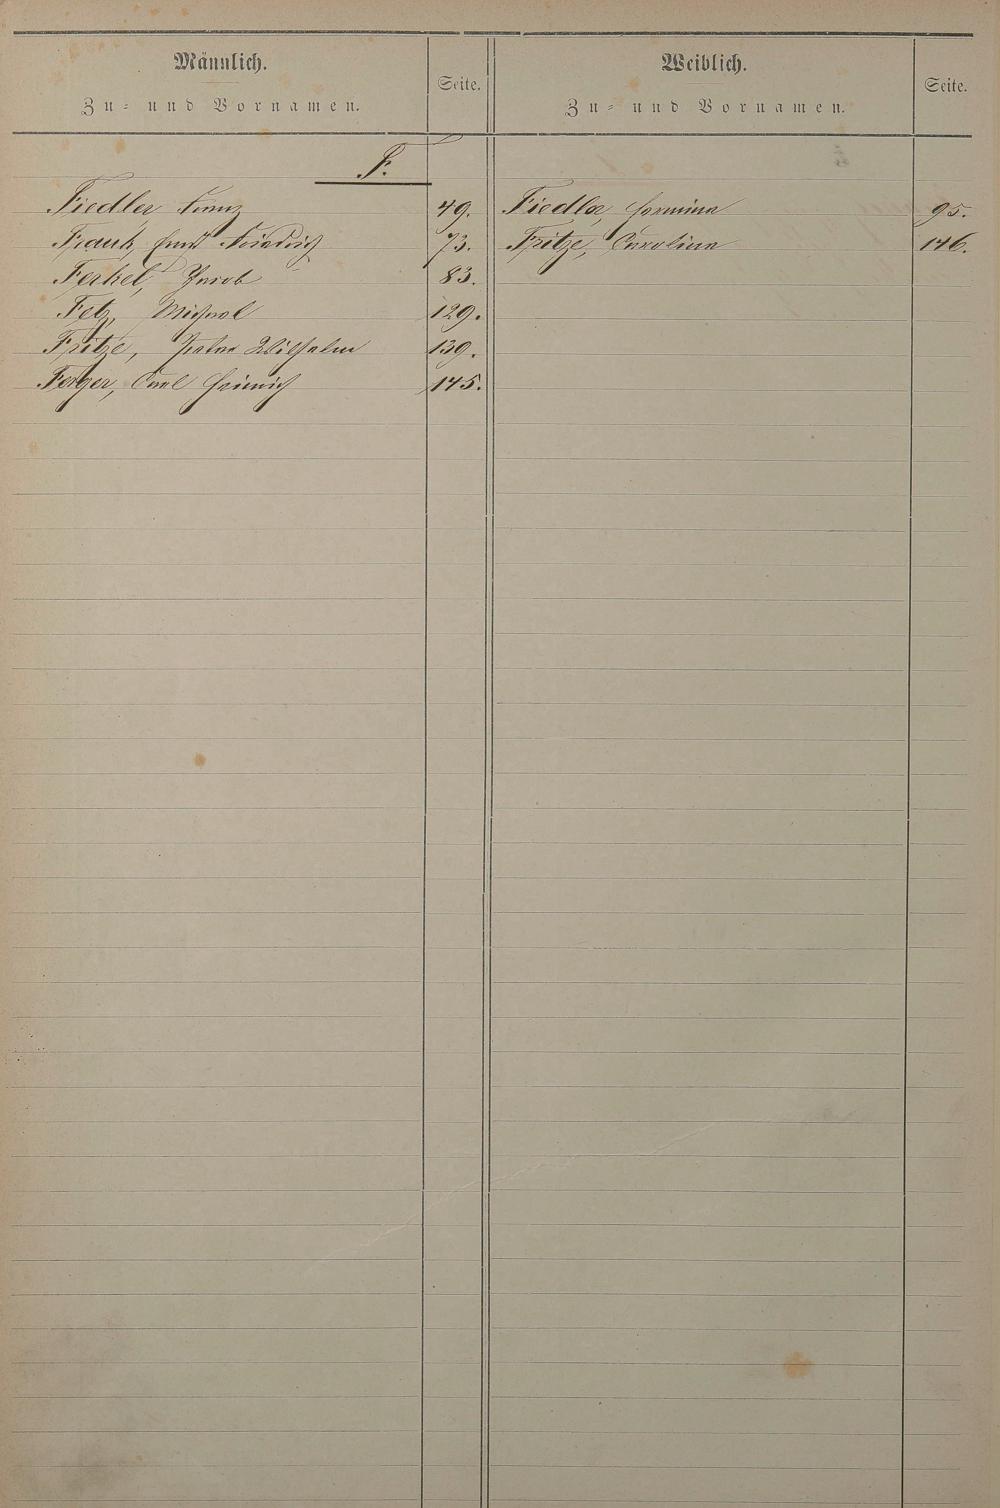 Männlich.
Zu- und Vornamen.
Seite.
F.
Fiedler, Franz 49.
Frank, Ernst Friedrich 73.
Ferkel, Jacob 83.
Fetz, Michael 129.
Fritze, Peter Wilhelm 139.
Ferger, Carl Heinrich 145.
Weiblich.
Zu- und Vornamen.
Seite.
Fiedler, Hermine 95.
Fritze, Caroline 146.